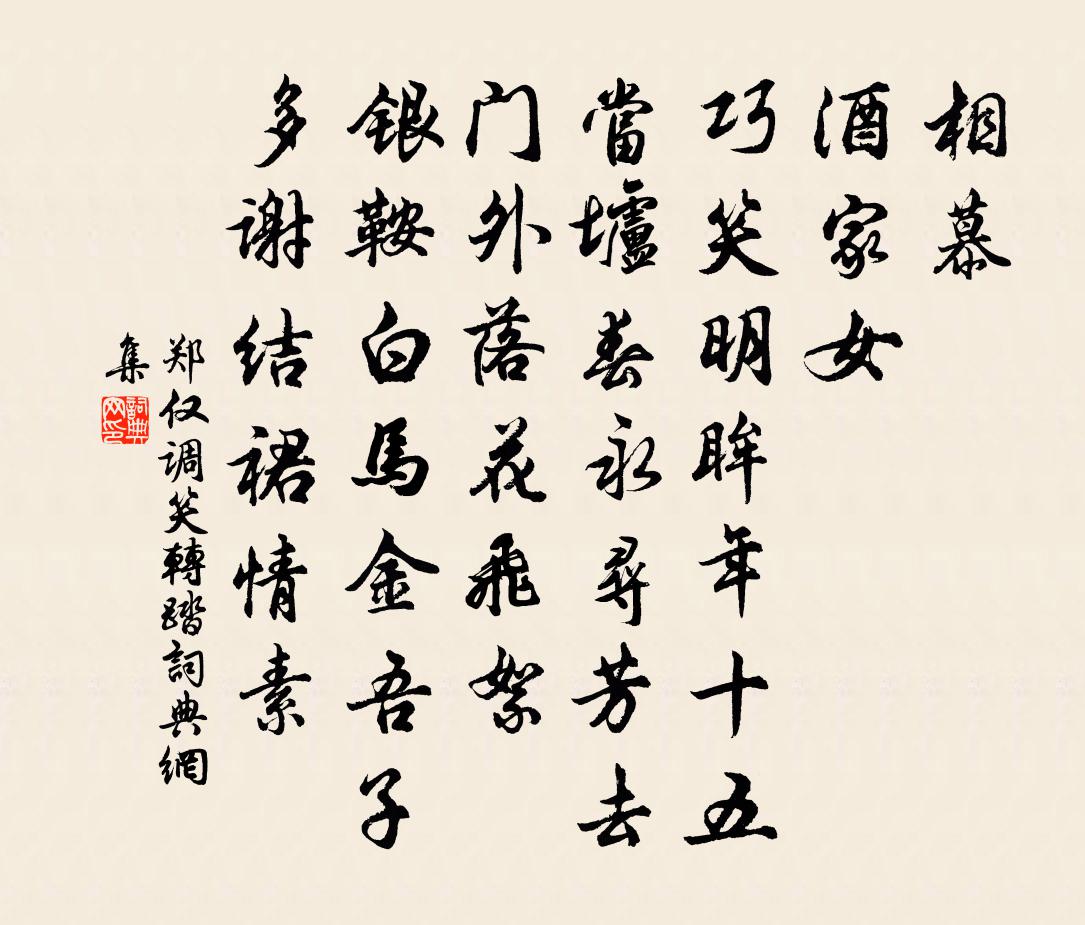 相慕
酒家女
巧笑明眸年十五
當壚春永尋芳去
门外落花飛絮
銀鞍白馬金吾子
多谢结裙情素
郑仅调笑轉踏詞典網
集
詞典网印